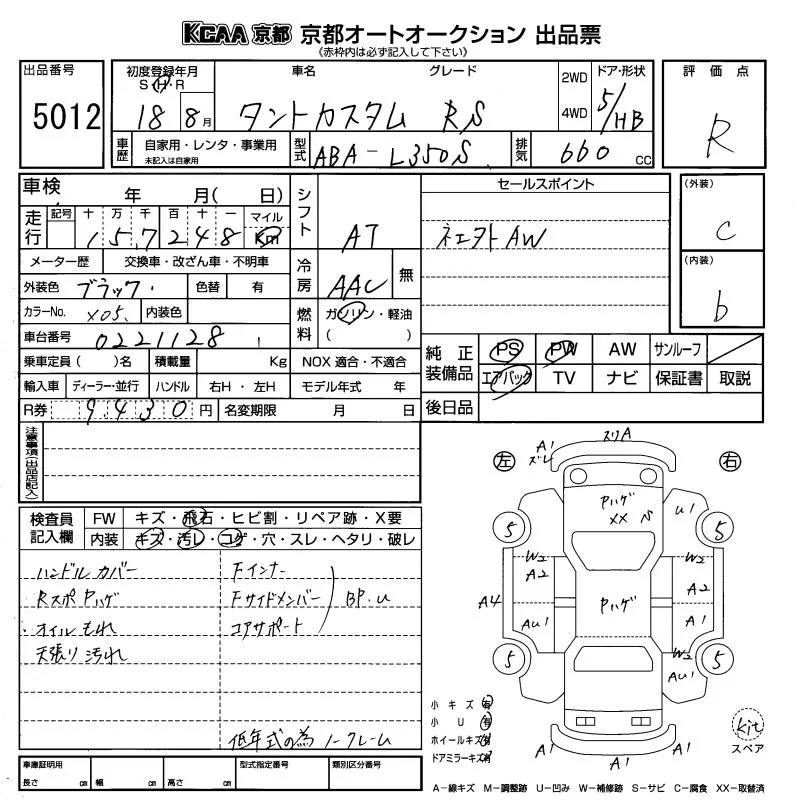 KCAA 京都 京都オートオークション 出品票
《赤枠内は必ず記入して下さい》
出品番号 初度登録年月 車名 グレード ドア・形状 評価点
S H R
5012 18 8月 タントカスタム RS 2WD 4WD 5/HB R
車歴 自家用・レンタ・事業用 未記入は自家用 型式 ABA-L350S 排気 660 CC
車検 年 月(日) シフト AT セールスポイント (外装) C
走行 記号 十 万 千 百 十 一 マイル Km
157248
ネエヲト AW
メーター歴 交換車・改ざん車・不明車 冷房 AAC 無 (内装) b
外装色 ブラック 色替 有
カラーNo. X05 内装色 燃料 ガソリン・軽油 ( )
車台番号 0221128
乗車定員( )名 積載量 Kg NOX 適合・不適合
純正装備品 PS PW AW サンルーフ
エアバック TV ナビ 保証書 取説
輸入車 ディーラー・並行 ハンドル 右H・左H モデル年式 年
R券 9430円 名変期限 月 日 後日品
注意事項(出品店記入)
検査員記入欄 FW キズ・飛石・ヒビ割・リペア跡・X要
内装 キズ・汚レ・コゲ・穴・スレ・ヘタリ・破レ
ハンドルカバー Fインナー
Rスポ Pハゲ Fサイドメンバー BP.u
オイルもれ コアサポート
天張り汚れ
低年式の為ノークレーム
車庫証明用 型式指定番号 類別区分番号
長さ cm 幅 cm 高さ cm
左 右
スリA
A1 ズレ
Pハゲ
XX
U1
5 5
W2 A2 W2 A2
A4 Pハゲ
AU1 A1
5 5
W2 AU1
小キズ 有
小U 有
ホイールキズ 有
ドアミラーキズ 有
A1 A1 A1
kit
スペア
A-線キズ M-調整跡 U-凹み W-補修跡 S-サビ C-腐食 XX-取替済